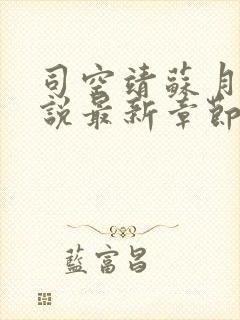 司空靖蘇月
說最新章節
藍富昌